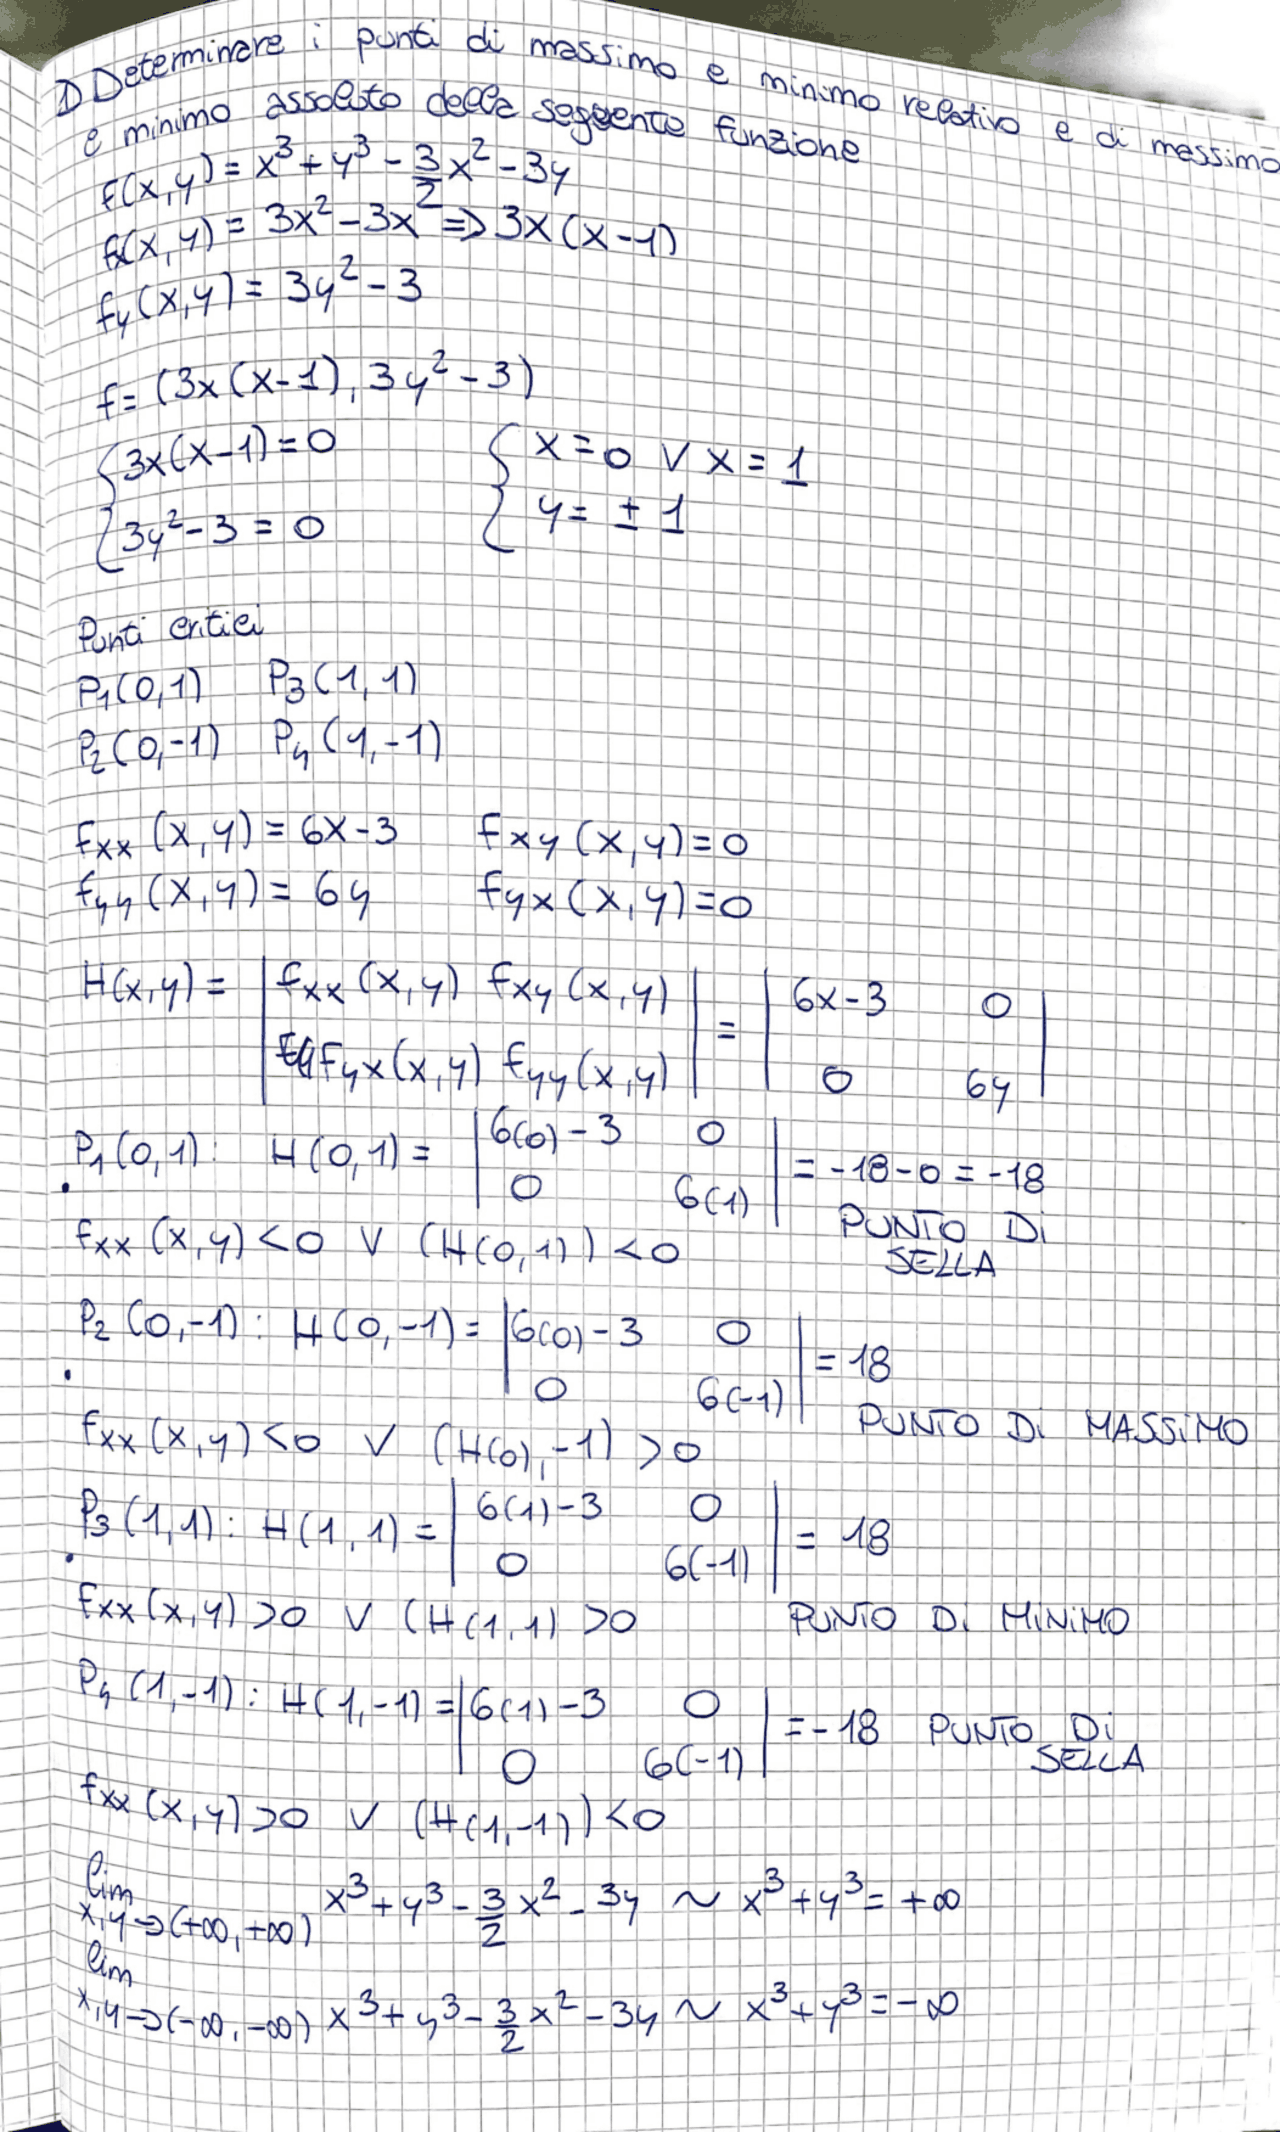 1) Determinare i punti di massimo e minimo relativo e di massimo
e minimo assoluto della seguente funzione
f(x,y) = x³ + y³ - 3/2 x² - 3y
fx(x,y) = 3x² - 3x => 3x(x-1)
fy(x,y) = 3y² - 3
f = (3x(x-1), 3y² - 3)
{3x(x-1) = 0 {x = 0 ∨ x = 1
{3y² - 3 = 0 {y = ± 1
Punti critici
P1(0,1) P3(1,1)
P2(0,-1) P4(1,-1)
fxx(x,y) = 6x-3 fxy(x,y) = 0
fyy(x,y) = 6y fyx(x,y) = 0
H(x,y) = | fxx(x,y) fxy(x,y) | = | 6x-3 0 |
| fyx(x,y) fyy(x,y) | | 0 6y |
P1(0,1): H(0,1) = | 6(0)-3 0 | = -18-0 = -18
| 0 6(1) | PUNTO Di
fxx(x,y) < 0 ∨ (H(0,1)) < 0 SELLA
P2(0,-1): H(0,-1) = | 6(0)-3 0 | = 18
| 0 6(-1) |
fxx(x,y) < 0 ∨ (H(0),-1) > 0 PUNTO Di MASSiMO
P3(1,1): H(1,1) = | 6(1)-3 0 | = 18
| 0 6(-1) |
fxx(x,y) > 0 ∨ (H(1,1) > 0 PUNTO Di MiNiMO
P4(1,-1): H(1,-1) = | 6(1)-3 0 | = -18 PUNTO Di
| 0 6(-1) | SELLA
fxx(x,y) > 0 ∨ (H(1,-1)) < 0
lim x,y→(+∞,+∞) x³ + y³ - 3/2 x² - 3y ~ x³ + y³ = +∞
lim x,y→(-∞,-∞) x³ + y³ - 3/2 x² - 3y ~ x³ + y³ = -∞